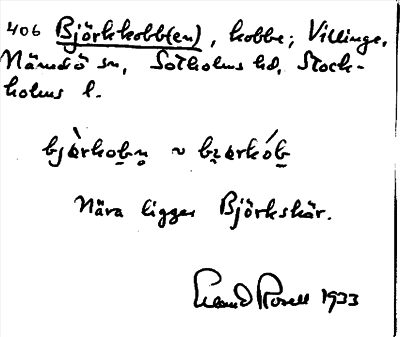 406 Björkkobb(en), kobbe; Villinge,
Nämdö sn, Sotholms hd, Stock-
holms l.
bjàrkobn̥ ~ bɪarkób
Nära ligger Björkskär.
Rosell 1933